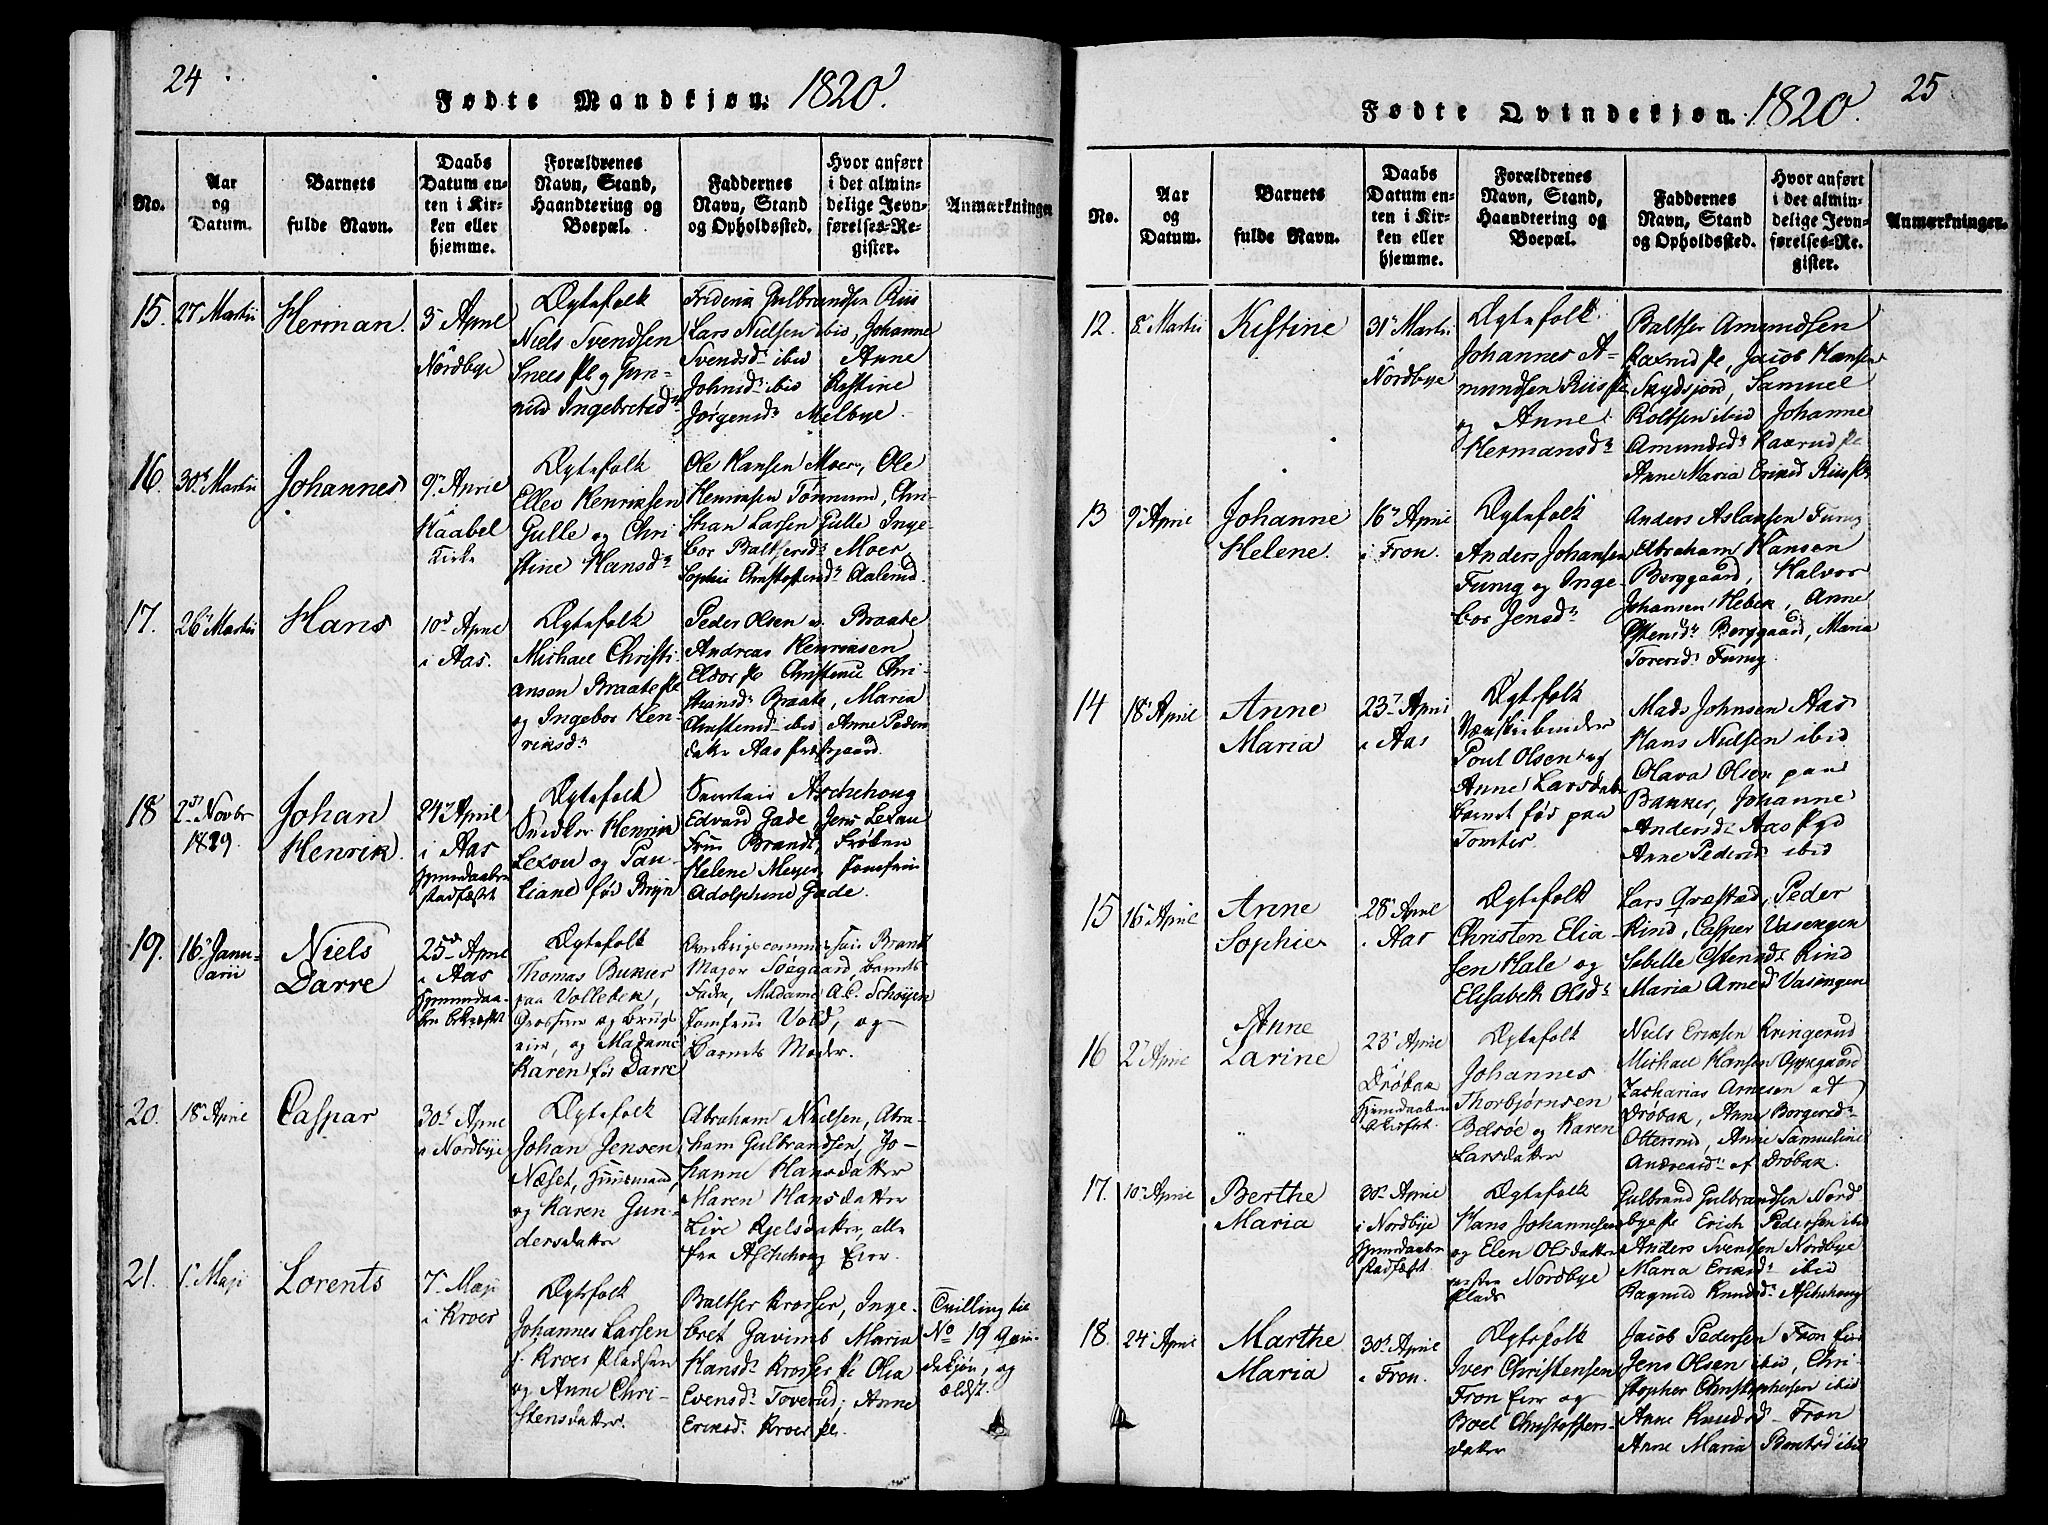 24
Fødte Mandkjøn. 1820.
No.
Aar
og
Datum.
Barnets
fulde Navn.
Daabs
Datum en-
ten i Kir-
ken eller
hjemme.
Forældrenes
Navn, Stand,
Haandtering og
Boepæl.
Faddernes
Navn, Stand
og Opholdssted.
Hvor anført
i det almin-
delige Jevn-
førelses-Re-
gister.
Anmærkninger
15.
27 Martii
Herman.
3 April
Nordbye
Ægtefolk
Niels Svendsen
Snees Pl og Gun-
nild Ingebretsdr
Friderik Gulbrandsen Riis
Lars Nielsen ibid, Johanne
Svendsdr ibid Anne
Johnsdr ibid Kistine
Jørgensdr Melbye.
16.
30 Martii
Johannes
9 April
i Kaabel
Kirke
Ægtefolk
Ellev Henriksen
Gulle og Chri-
stine Hansdr
Ole Hansen Moer, Ole
Henriksen Tønnum, Chri-
stian Larsen Gulle Inge-
bor Baltsersdr Moer
Sophie Christoffersdr Aalerud.
17.
26 Martii
Hans
10 April
i Aas.
Ægtefolk
Michael Christi-
ansen Braate Pl
og Ingebor Hen-
riksdr
Peder Olsen Braate
Andreas Henriksen
Eldor Pl Christence Chri-
stiansdr Braate, Maria
Christensd ibid Anne Peders
datter Aas Præstgaard.
18
2 Novbr
1819.
Johan
Henrik.
24 April
i Aas
Hjemmdaaben
stadfæst
Ægtefolk
Snedker Henrik
Lexou og Pau-
liane fød Bryn
Aschehoug
Edvard Gade, Jens Lexau
Frue Brandt, Frøken
Helene Meyer, Jomfrue
Adolphine Gade.
19.
16 Janu-
arii
Niels
Darre
25 April
i Aas
Hjemmdaa-
ben bekræftet
Ægtefolk
Thomas Bukier
paa Vollebek,
og
eier, og Madame
Karen fød Darre
Brandt
Major Søegaard, Barnets
Fader, Madame A.C. Schøyen
Jomfrue Vold, og
Barnets Moder.
20.
18 April
Caspar
30 April
i Nordbye
Ægtefolk
Johan Jensen
Næset, Huusmand,
og Karen Gun-
dersdatter
Abraham Nielsen, Abra-
ham Gulbrandsen, Jo-
hanne Hansdatter
Maren Hansdatter
Live Kjelsdatter, alle
fra Aschehoug Eier.
21.
1 Maji
Lorents
7 Maji
i Kroer
Ægtefolk
Johannes Larsen
Kroer Pladsen
og Anne Chri-
stensdatter.
Baltser Krosser, Inge-
bret Gavimb Maria
Hansdr Krosser Pl Olia
Evensdr Toverud, Anne
Eriksdr Kroer Pl.
Tvilling til
No 19 Qvin-
dekjøn, og
ældst.
25
Fødte Qvindekjøn. 1820.
No.
Aar
og
Datum.
Barnets
fulde Navn.
Daabs
Datum en-
ten i Kir-
ken eller
hjemme.
Forældrenes
Navn, Stand,
Haandtering og
Boepæl.
Faddernes
Navn, Stand
og Opholdssted.
Hvor anført
i det almin-
delige Jevn-
førelses-Re-
gister.
Anmærkninger.
12.
8 Martii
Kistine
31 Martii
i Nordbye
Ægtefolk
Johannes A-
mundsen Riis Pl
og Anne
Hermansdr
Baltser Amundsen
Kaxrud Pl, Jacob Hansen
Skydsjord, Samuel
Roltsen ibid Johanne
Amundsdr Kaxrud Pl
Anne Maria Eriksd Riis Pl
13
9 April
Johanne
Helene.
16 April
i Fron.
Ægtefolk
Anders Johansen
Furug og Inge-
bor Jensdr
Anders Aslaksen Furug
Abraham Hansen
Berggaard, Halvor
Johansen Hebek, Anne
Østensdr Berggaard, Maria
Toresdr Furug.
14
18 April
Anne
Maria
23 April
i Aas
Ægtefolk
Væveskeebinder
Poul Olsen og
Anne Larsdatter
barnet fød paa
Tomter.
Mads Johnsen Aas
Hans Nielsen ibid
Olava Olsen paa
Bakker, Johanne
Andersdr Aas Pgd
Anne Pedersd ibid
15
16 April
Anne
Sophie
28 April
i Aas
Ægtefolk
Christen Elia-
sen Hale og
Elisabeth Olsdr
Lars Qvæstad, Peder
Rind, Casper Vasengen
Sibille Østensdr Rind
Maria Arnesd Vasengen
16
2 April
Anne
Larine
23 April
i Drøbak
Hjemdaaben
bekræftet.
Ægtefolk
Johannes
Thorbjørnsen
Belsøe og Karen
Larsdatter
Niels Eriksen Kringerud
Michael Hansen Oppegaard
Zacharias Arnesen af
Drøbak, Anne Borgersdr
Ottersrud, Anne Samueline
Andreasdr af Drøbak.
17.
10 April
Berthe
Maria
30 April
i Nordbye
Hjemmdaaben
stadfæst
Ægtefolk
Hans Johannesen
og Elen Olsdatter
Nordbye
Plads
Gulbrand Gulbrandsen Nord-
bye Pl Erich Pedersen ibid
Anders Svendsen Nordbye
Maria Eriksdr ibid
Ragnild Knudsdr Aschehoug
18.
24 April
Marthe
Maria
30 April
i Fron.
Ægtefolk
Iver Christensen
Fron Eier og
Boel Christoffers-
datter
Jacob Pedersen Fron Eier
Jens Olsen ibid, Chri-
stopher Christophersen ibid
Anne Knudsd Fron
Anne Maria Bentsd ibid